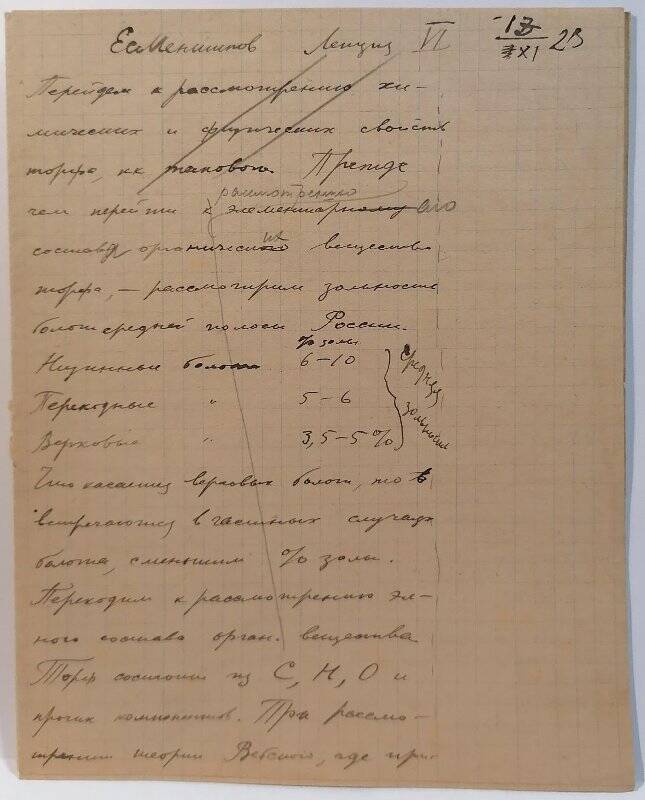 Е. Меншиков Лекция VI 13/XI 23
Перейдем к рассмотрению хи-
мических и физических свойств
торфа, как такового. Прежде
рассмотрению
чем перейти к элементарному ого
состава органических веществ
торфа, – рассмотрим зольность
болот средней полосы России.
% золы
Низинные болота 6–10
Переходные " 5–6
Верховые " 3,5–5%
Средняя зольность
Что касается верховых болот, то
встречаются в частных случаях
болота, с меньшим % золы.
Переходим к рассмотрению эл-
ного состава орган. вещества
Торф состоит из С, Н, О и
прочих компонентов. При рассмо-
трении теории Вебского, где при-